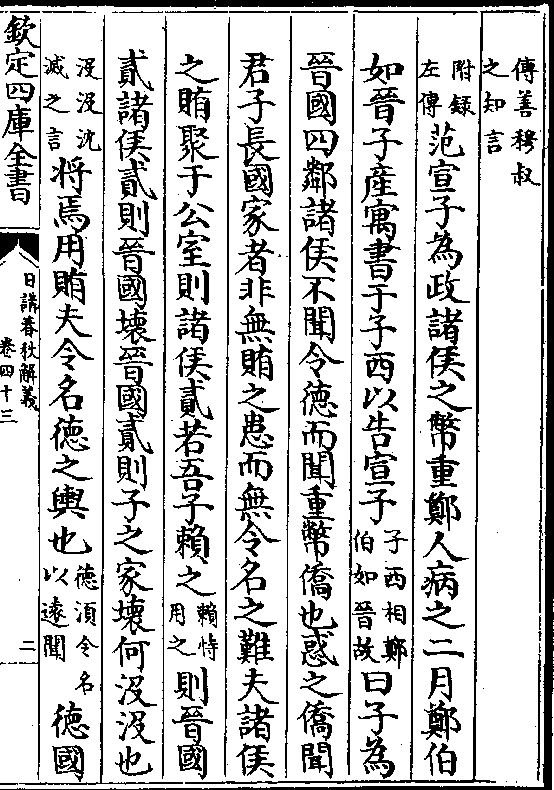 傳善穆叔
之知言
附録
左傳
范宣子為政諸侯之幣重鄭人病之二月鄭伯
如晉子産寓書于子西以告宣子
子西相鄭
伯如晉故
曰子為
晉國四鄰諸侯不聞令德而聞重幣僑也惑之僑聞
君子長國家者非無賄之患而無令名之難夫諸侯
之賄聚于公室則諸侯貳若吾子賴之
賴恃
用之
則晉國
貳諸侯貳則晉國壞晉國貳則子之家壞何沒沒也
沒沒沈
滅之言
將焉用賄夫令名德之輿也
德湏令名
以遠聞
德國
欽定四庫全書
日講春秋解義
卷四十三
二